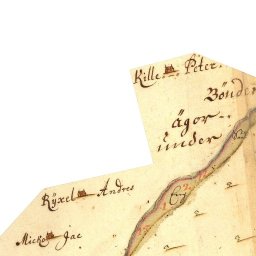 Kille Peter
Bönder
ägor
under
Ryxel Andres
Mickel Jac